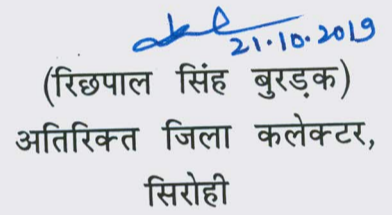 21.10.2019
(रिछपाल सिंह बुरड़क)
अतिरिक्त जिला कलेक्टर,
सिरोही